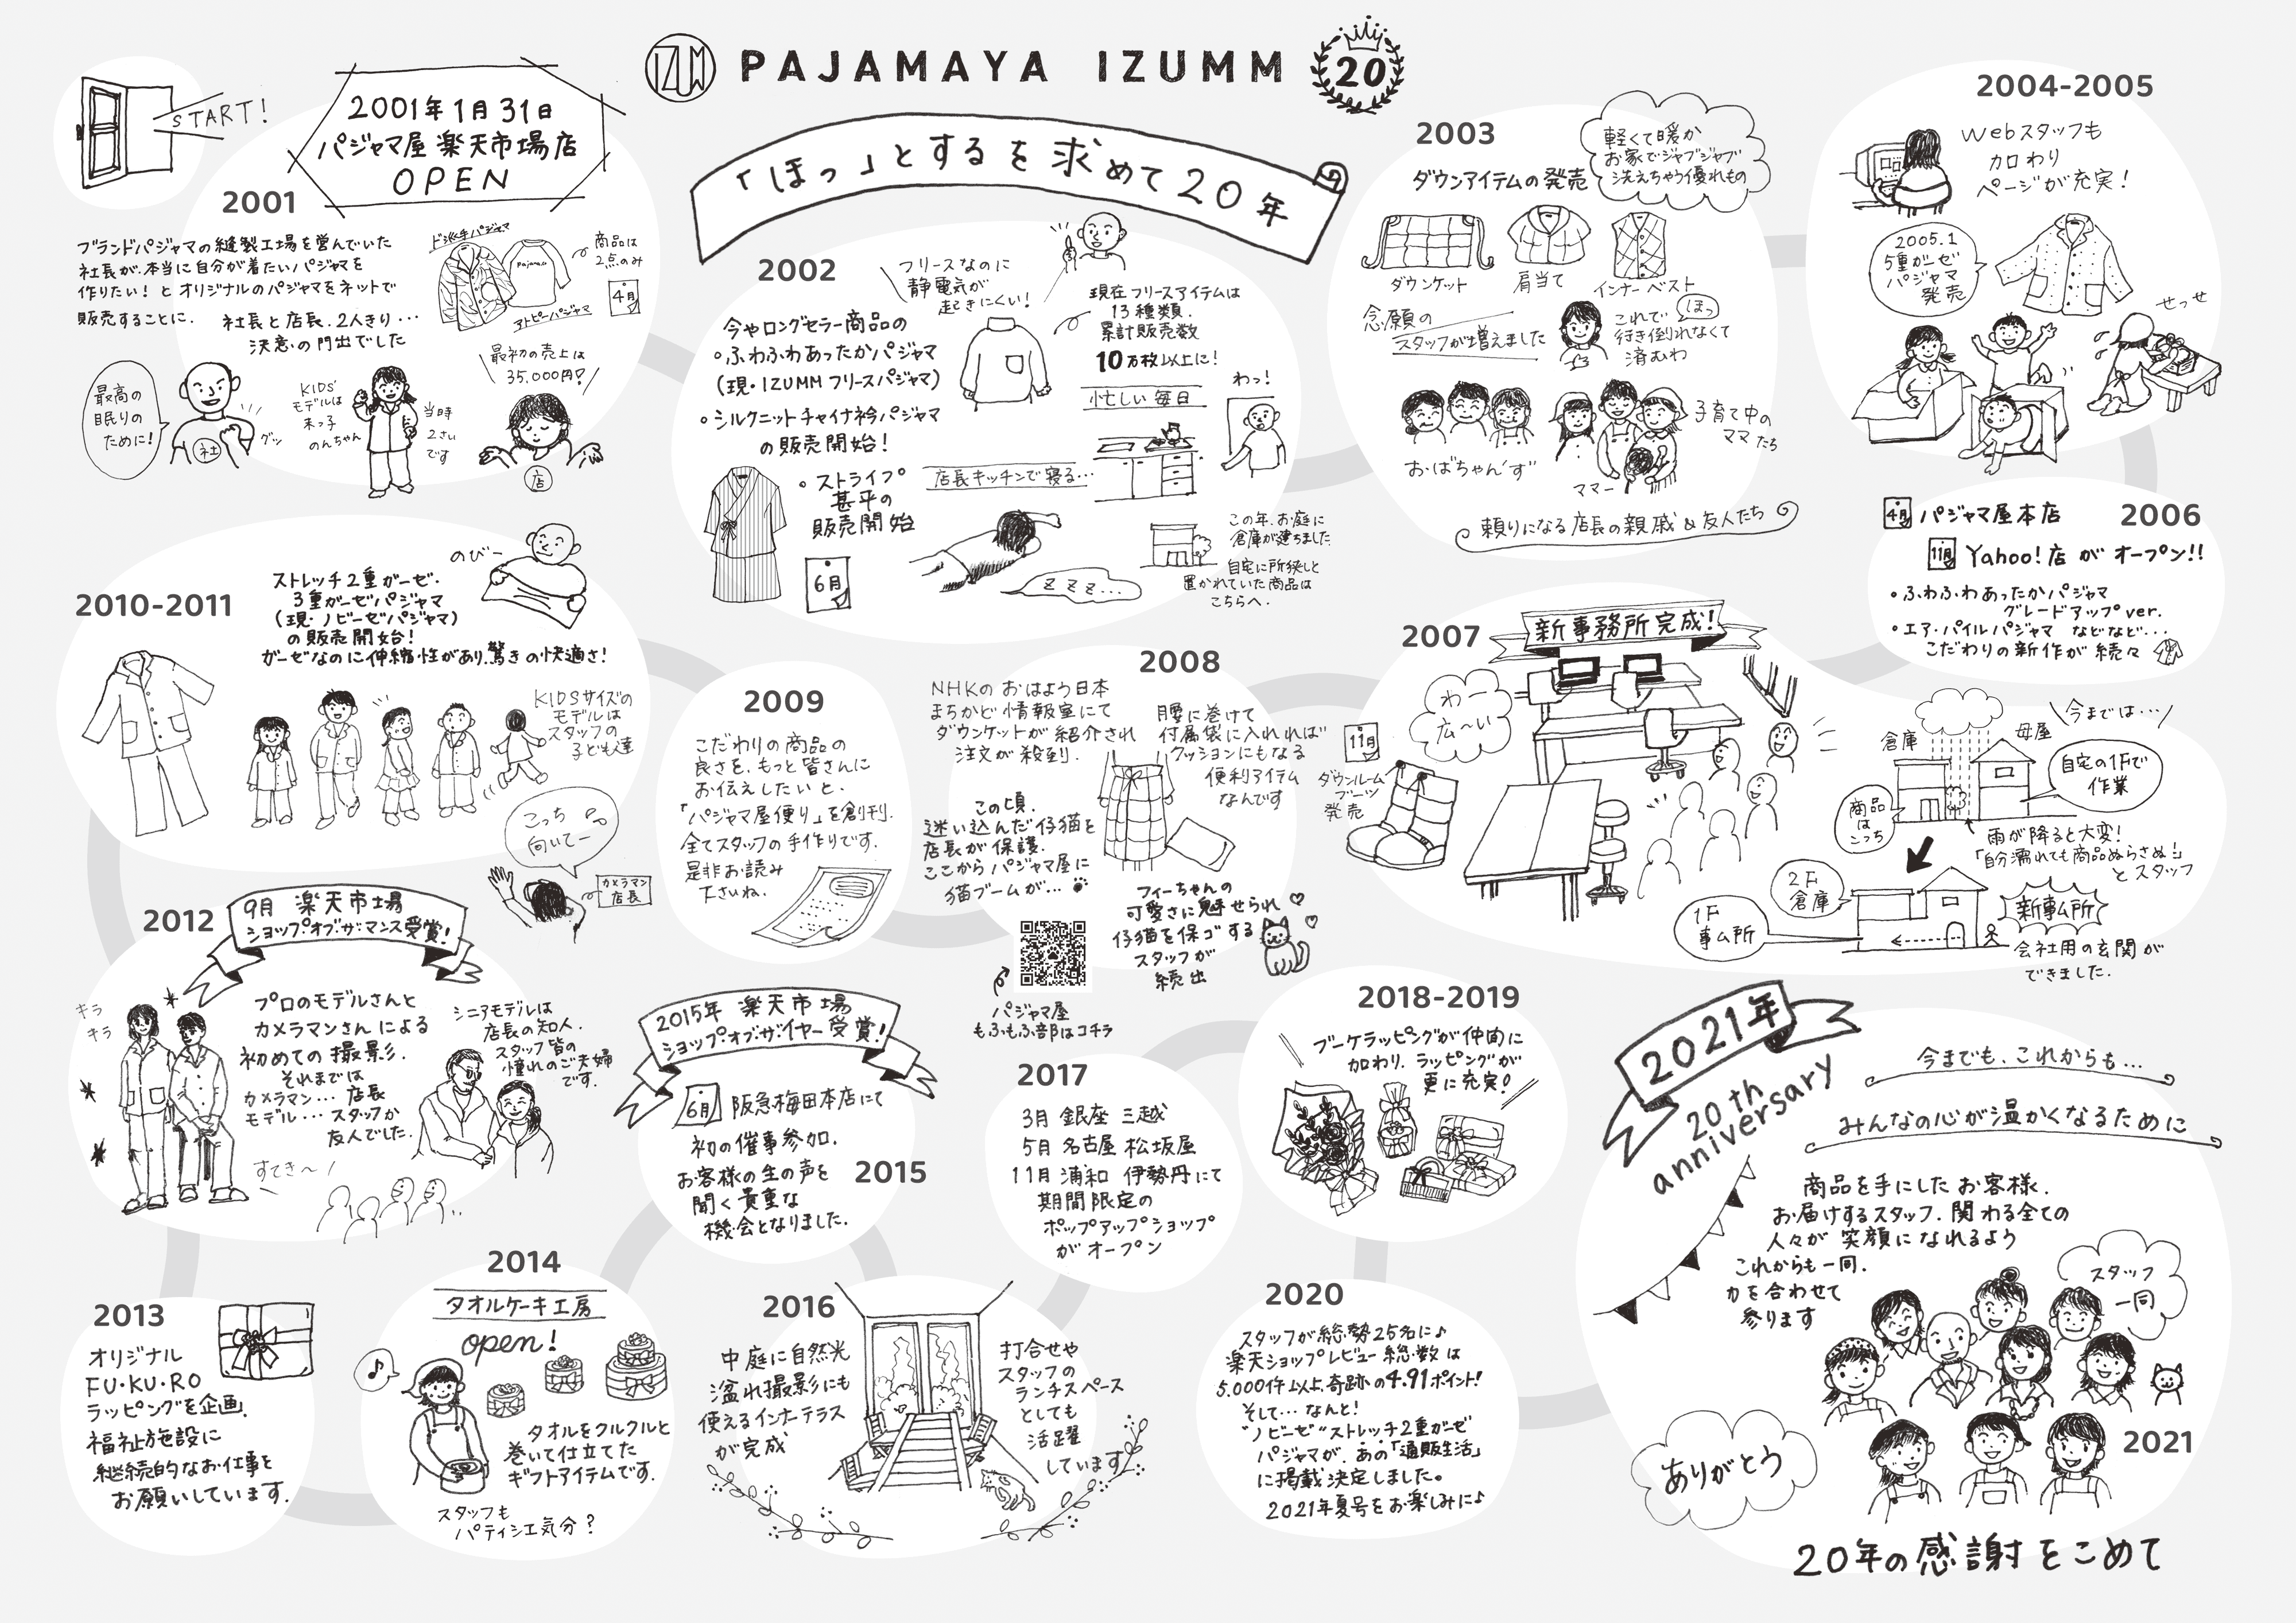 IZUM
PAJAMAYA IZUMM
20
「ほっ」とするを求めて20年
START!
2001年1月31日
パジャマ屋 楽天市場店
OPEN
2001
ブランドパジャマの縫製工場を営んでいた
社長が、本当に自分が着たいパジャマを
作りたい！とオリジナルのパジャマをネットで
販売することに。
社長と店長、2人きり…
決意の門出でした
ド派手パジャマ
Pajamas
商品は
2点のみ
4月
アトピーパジャマ
最初の売上は
35,000円?
最高の
眠りの
ために!
社
グッ
KIDS
モデルは
末っ子
のんちゃん
当時
2さい
です
店
2002
フリースなのに
静電気が
起きにくい!
今やロングセラー商品の
•ふわふわあったかパジャマ
(現・IZUMMフリースパジャマ)
•シルクニットチャイナ衿パジャマ
の販売開始!
•ストライプ
甚平の
販売開始
6月
現在フリースアイテムは
13種類、
累計販売数
10万枚以上に!
忙しい毎日
わっ!
店長キッチンで寝る…
zzz...
この年、お庭に
倉庫が建ちました
自宅に所狭しと
置かれていた商品は
こちらへ。
2003
ダウンアイテムの発売
軽くて暖か
お家でジャブジャブ
洗えちゃう優れもの
ダウンケット
肩当て
インナーベスト
念願の
スタッフが増えました
これで
行き倒れなくて
済むわ
ほっ
おばちゃん'ず"
ママー
子育て中の
ママたち
頼りになる店長の親戚&友人たち
2004-2005
Webスタッフも
加わり
ページが充実!
2005.1
5重ガーゼ
パジャマ
発売
せっせ
2006
4月 パジャマ屋本店
11月 Yahoo!店がオープン!!
•ふわふわあったかパジャマ
グレードアップver.
•エア・パイルパジャマ などなど…
こだわりの新作が続々
2007
新事務所完成!
わー
広〜い
11月
ダウンルーム
ブーツ
発売
今までは…
倉庫
母屋
自宅の1Fで
作業
商品
は
こっち
雨が降ると大変!
「自分濡れても商品ぬらさぬ!」
とスタッフ
2F
倉庫
1F
事ム所
新事ム所
会社用の玄関が
できました。
2008
NHKのおはよう日本
まちかど情報室にて
ダウンケットが紹介され
注文が殺到。
腰に巻けて
付属袋に入れれば
クッションにもなる
便利アイテム
なんです
この頃、
迷い込んだ仔猫を
店長が保護。
ここからパジャマ屋に
猫ブームが…
フィーちゃんの
可愛さに魅せられ
仔猫を保ゴする
スタッフが
続出
パジャマ屋
もふもふ部はコチラ
2009
こだわりの商品の
良さを、もっと皆さんに
お伝えしたいと、
「パジャマ屋便り」を創刊。
全てスタッフの手作りです。
是非お読み
下さいね。
2010-2011
のびー
ストレッチ2重ガーゼ・
3重ガーゼパジャマ
(現・ノビーゼパジャマ)
の販売開始!
ガーゼなのに伸縮性があり、驚きの快適さ!
KIDSサイズの
モデルは
スタッフの
子ども達
こっち
向いてー
カメラマン
店長
2012
9月 楽天市場
ショップ・オブ・ザ・マンス受賞!
キラ
キラ
プロのモデルさんと
カメラマンさんによる
初めての撮影。
それまでは
カメラマン…店長
モデル…スタッフか
友人でした。
シニアモデルは
店長の知人。
スタッフ皆の
憧れのご夫婦
です。
すてき〜!
2013
オリジナル
FU・KU・RO
ラッピングを企画。
福祉施設に
継続的なお仕事を
お願いしています。
2014
タオルケーキ工房
open!
タオルをクルクルと
巻いて仕立てた
ギフトアイテムです。
スタッフも
パティシエ気分?
2015年 楽天市場
ショップ・オブ・ザ・イヤー受賞!
6月 阪急梅田本店にて
初の催事参加。
お客様の生の声を
聞く貴重な
機会となりました。
2015
2016
中庭に自然光
溢れ撮影にも
使えるインナーテラス
が完成
打合せや
スタッフの
ランチスペース
としても
活躍
しています
2017
3月 銀座 三越
5月 名古屋 松坂屋
11月 浦和 伊勢丹にて
期間限定の
ポップアップショップ
がオープン
2018-2019
ブーケラッピングが仲間に
加わり、ラッピングが
更に充実!
2020
スタッフが総勢25名に♪
楽天ショップレビュー総数は
5,000件以上、奇跡の4.91ポイント!
そして…なんと!
"ノビーゼ"ストレッチ2重ガーゼ
パジャマが、あの「通販生活」
に掲載決定しました。
2021年夏号をお楽しみに♪
2021年
20th
anniversary
今までも、これからも…
みんなの心が温かくなるために
商品を手にしたお客様、
お届けするスタッフ、関わる全ての
人々が笑顔になれるよう
これからも一同、
力を合わせて
参ります
スタッフ
一同
2021
ありがとう
20年の感謝をこめて